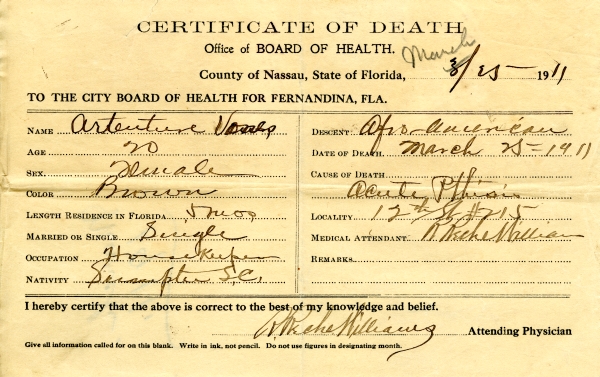 CERTIFICATE OF DEATH
Office of BOARD OF HEALTH.
March
County of Nassau, State of Florida, 3/25 1911
TO THE CITY BOARD OF HEALTH FOR FERNANDINA, FLA.
NAME Arteuture
AGE 20
SEX. Female
COLOR Brown
LENGTH RESIDENCE IN FLORIDA 5 mos
MARRIED OR SINGLE Single
OCCUPATION House Keeper
NATIVITY Sumpter S.C.
DESCENT. Afro-American
DATE OF DEATH. March 25-1911
CAUSE OF DEATH
Acute Pthisis
LOCALITY 12th St # 215
MEDICAL ATTENDANT. Williams
REMARKS.
I hereby certify that the above is correct to the best of my knowledge and belief.
Williams Attending Physician
Give all information called for on this blank. Write in ink, not pencil. Do not use figures in designating month.